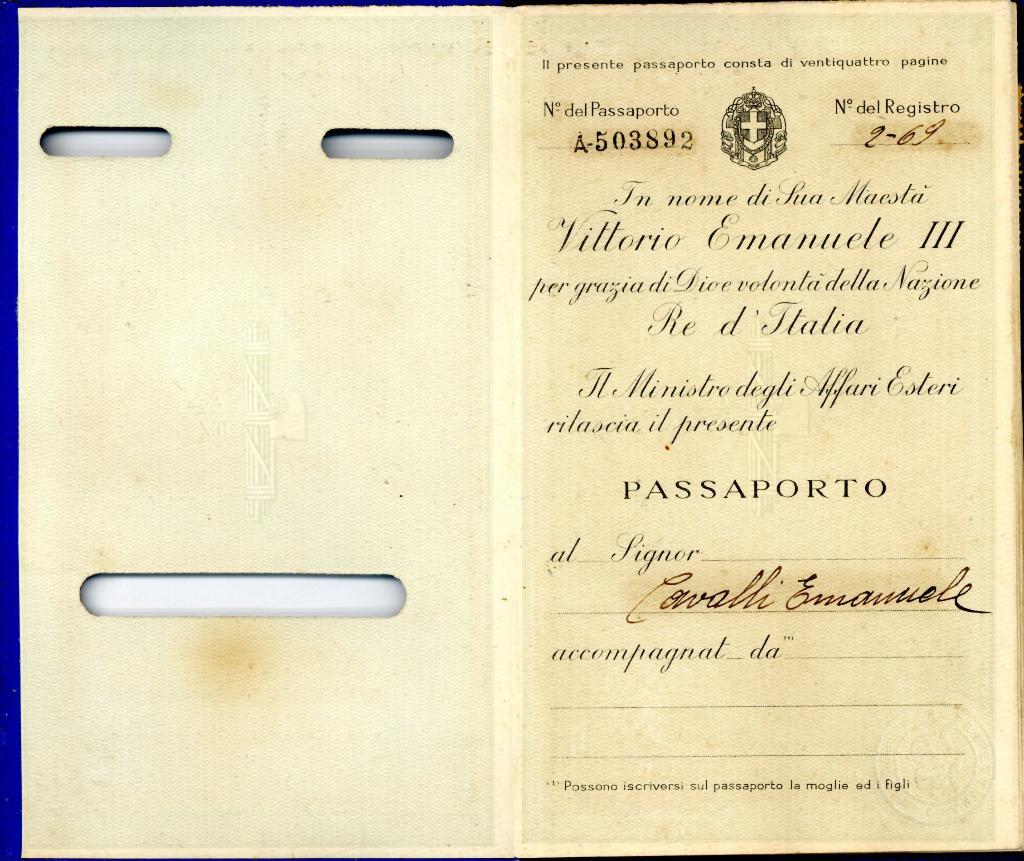 Il presente passaporto consta di ventiquattro pagine
Nº del Passaporto
A-503892
Nº del Registro
2-69
In nome di Sua Maestà
Vittorio Emanuele III
per grazia di Dio e volontà della Nazione
Re d'Italia
Il Ministro degli Affari Esteri
rilascia il presente
PASSAPORTO
al Signor
Cavalli Emanuele
accompagnat da (1)
(1) Possono iscriversi sul passaporto la moglie ed i figli